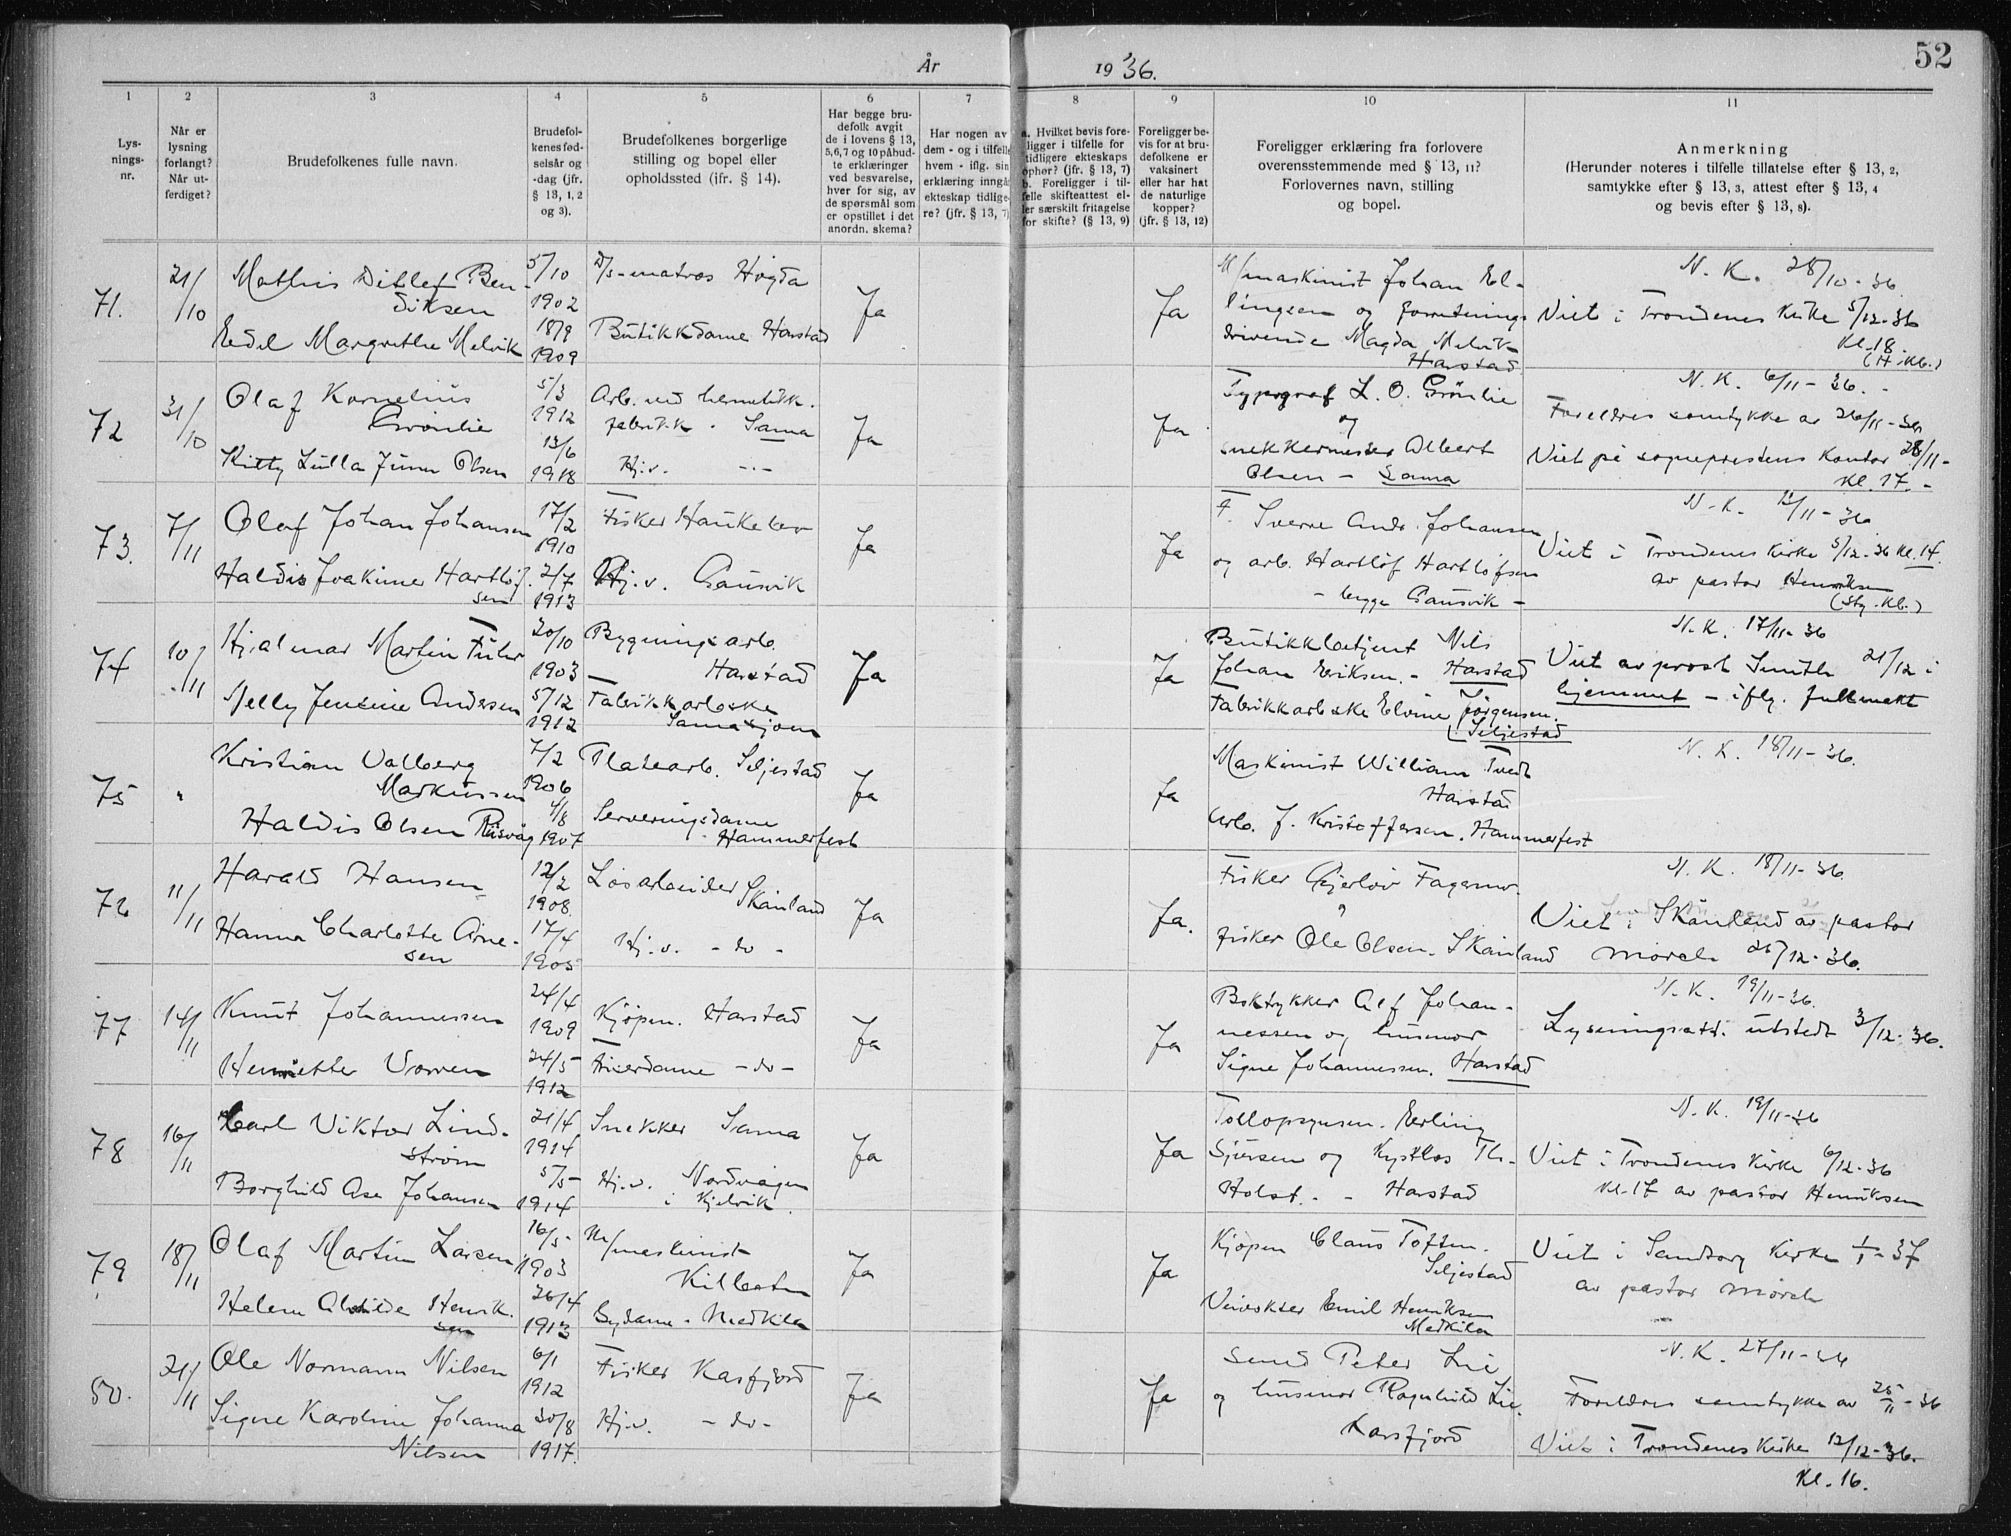 52
År 19 '36.
1 2 3 4 5 6 7 8 9 10 11
Lys-
nings-
nr.
Når er
lysning
forlangt?
Når ut-
ferdiget?
Brudefolkenes fulle navn.
Brudefol-
kenes fød-
selsår og
-dag (jfr.
§ 13, 1, 2
og 3).
Brudefolkenes borgerlige
stilling og bopel eller
opholdssted (jfr. § 14).
Har begge bru-
defolk avgit
de i lovens § 13,
5, 6, 7 og 10 påbud-
te erklæringer
ved besvarelse,
hver for sig, av
de spørsmål som
er opstillet i det
anordn. skema?
Har nogen av
dem - og i tilfelle
hvem - iflg. sin
erklæring inngå
ekteskap tidlige-
re? (jfr. § 13, 7)
a. Hvilket bevis fore-
ligger i tilfelle for
tidligere ekteskaps
ophør? (jfr. § 13, 7)
b. Foreligger i til-
felle skifteattest el-
ler særskilt fritagelse
for skifte? (§ 13, 9)
Foreligger be-
vis for at bru-
defolkene er
vaksinert
eller har hat
de naturlige
kopper?
(jfr. § 13, 12)
Foreligger erklæring fra forlovere
overensstemmende med § 13, 11?
Forlovernes navn, stilling
og bopel.
Anmerkning
(Herunder noteres i tilfelle tillatelse efter § 13, 2,
samtykke efter § 13, 3, attest efter § 13, 4
og bevis efter § 13, 8).
71.
21/
/10
Mathis Ditlef Ben-
diksen
Edel Margrethe Melvik
5/10
1902
18/9
1909
D/s-matros Høgda
Butikkdame Harstad
Ja
Ja
M/maskinist Johan El-
lingsen og forretnings
drivende Magda Melvik
Harstad
N. K. 28/10-36
Viet i Trondenes Kirke 5/12-36
Kl. 18
72
31/
/10
Olaf Kornelius
Grönlie
Kitty Lulla Olsen
5/3
1912
13/6
1918
Arb. ved hermetikk.
fabrikk. Sama
Hj.v. -..-
Ja
Ja
Typograf L. O. Grönlie
og
snekkermester Albert
Olsen - Sama
N. K. 6/11-36.
Foreldres samtykke av 26/11-36
Viet på sogneprestens Kontor 28/11-
Kl. 17. -
73.
7/
/11
Olaf Johan Johansen
Haldis Joakimer Hartlöf-
sen
17/2
1910
2/7
1913
Fisker
Hj.v. Gausvik
Ja
Ja
F. Sverre Andr. Johansen
og arb. Hartlöf Hartlöfsen
- begge Gausvik -
N. K. 12/11-36
Viet i Trondenes Kirke 5/12-36 Kl. 17.
av pastor Henriksen
74
10/
/11
Hjalmar Martin
Nelly Jensine Andersen
20/10
1903
5/12
1912
Bygningsarb.
Harstad
Fabrikkarbske
Samasjøen
Ja
Ja
Butikkbetjent Nils
Johan Eriksen. - Harstad
Fabrikkarbske Elvine Jörgensen.
Seljestad
N. K. 17/11-36
Viet av prost Smith 21/12 i
hjemmet - iflg. fullmakt
75
"
Kristian Valberg
Markussen
Haldis Olsen Risvåg
7/2
1906
4/8
1907
Platearb. Seljestad
Serveringsdame
- Hammerfest
Ja
Ja
Maskinist William Tvedt
Harstad
Arb. J. Kristoffersen. Hammerfest
N. K. 18/11-36.
76
11/
/11
Harald Hansen
Hanna Charlotte Arne-
sen
12/2
1908.
17/4
1905
Løsarbeider
Skånland
Hj.v. - do -
Ja
Ja.
Fisker
Fisker Ole Olsen. Skånland
N. K. 18/11-36
Viet i Skånland av pastor
Mørch 25/12-36.
77
14/
/11
Knut Johannessen
Henriette Vorren
24/4
1909
24/5
1912
Kjøpm. Harstad
Frisérdame - do -
Ja
Ja
Boktykker Alf Johan-
nessen og husmor
Signe Johannessen. Harstad
N. K. 19/11-36.
Lysningsatt. utstedt 3/12-36.
78
16/
/11
Carl Viktor Lind-
ström
Borghild Åse Johansen
21/4
1914
5/5-
1914
Snekker Sama
Hj.v. Nordvågen
i Kjelvik.
Ja
Ja
Tollopsynsm. Erling
Sjursen og Kystlos Th.
Holst. - Harstad
N. K. 19/11-36
Viet i Trondenes Kirke 6/12-36
Kl. 17 av pastor Henriksen
79
18/
/11
Olaf Martin Larsen
Helene Henrik-
sen
16/5-
1903
26/4
1913
M/maskinist
Kilbotn
Sydame. Medkila
Ja
Ja
Kjøpm Claus Toften.
Seljestad
Veivokter Emil Henriksen
Medkila
Viet i Sandtorg Kirke 1/1-37
av pastor Mørch
80.
21/
/11
Ole Normann Nilsen
Signe Karoline Johanna
Nilsen
6/1
1912
30/8
1917.
Fisker Kasfjord
Hj.v. - do -
Ja
Ja
Smed Peter Lie
og husmor Ragnhild Lie.
Kasfjord
N. K. 27/11-36
Foreldres samtykke av 25/11-36
Viet i Trondenes Kirke 12/12-36.
Kl. 16.